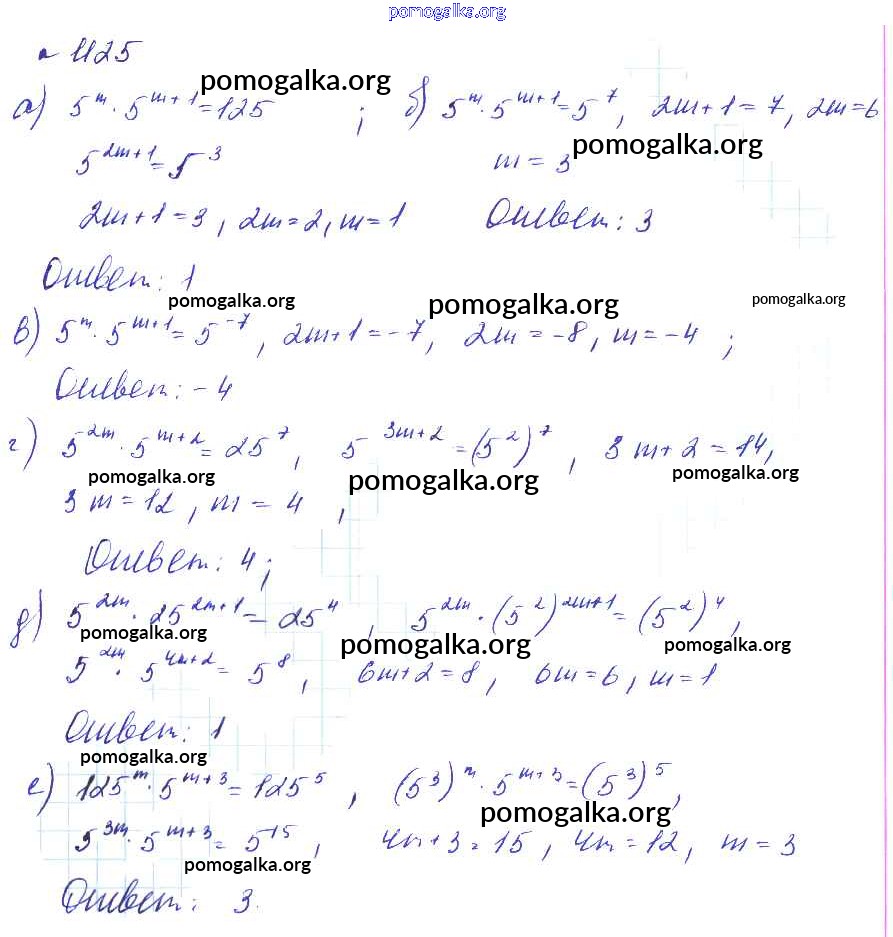 pomogalka.org
№ 1125
pomogalka.org
а) 5^m · 5^(m+1) = 125 ; б) 5^m · 5^(m+1) = 5^7, 2m+1 = 7, 2m = 6
pomogalka.org
5^(2m+1) = 5^3 m = 3
2m+1 = 3, 2m = 2, m = 1 Ответ: 3
Ответ: 1
pomogalka.org pomogalka.org pomogalka.org
в) 5^m · 5^(m+1) = 5^(-7), 2m+1 = -7, 2m = -8, m = -4 ;
Ответ: -4
г) 5^(2m) · 5^(m+2) = 25^7, 5^(3m+2) = (5^2)^7, 3m+2 = 14,
pomogalka.org pomogalka.org pomogalka.org
3m = 12, m = 4,
Ответ: 4;
д) 5^(2m) · 25^(2m+1) = 25^4, 5^(2m) · (5^2)^(2m+1) = (5^2)^4,
pomogalka.org pomogalka.org pomogalka.org
5^(2m) · 5^(4m+2) = 5^8, 6m+2 = 8, 6m = 6, m = 1
Ответ: 1
pomogalka.org
е) 125^m · 5^(m+3) = 125^5, (5^3)^m · 5^(m+3) = (5^3)^5,
pomogalka.org
5^(3m) · 5^(m+3) = 5^15, 4m+3 = 15, 4m = 12, m = 3
pomogalka.org
Ответ: 3.